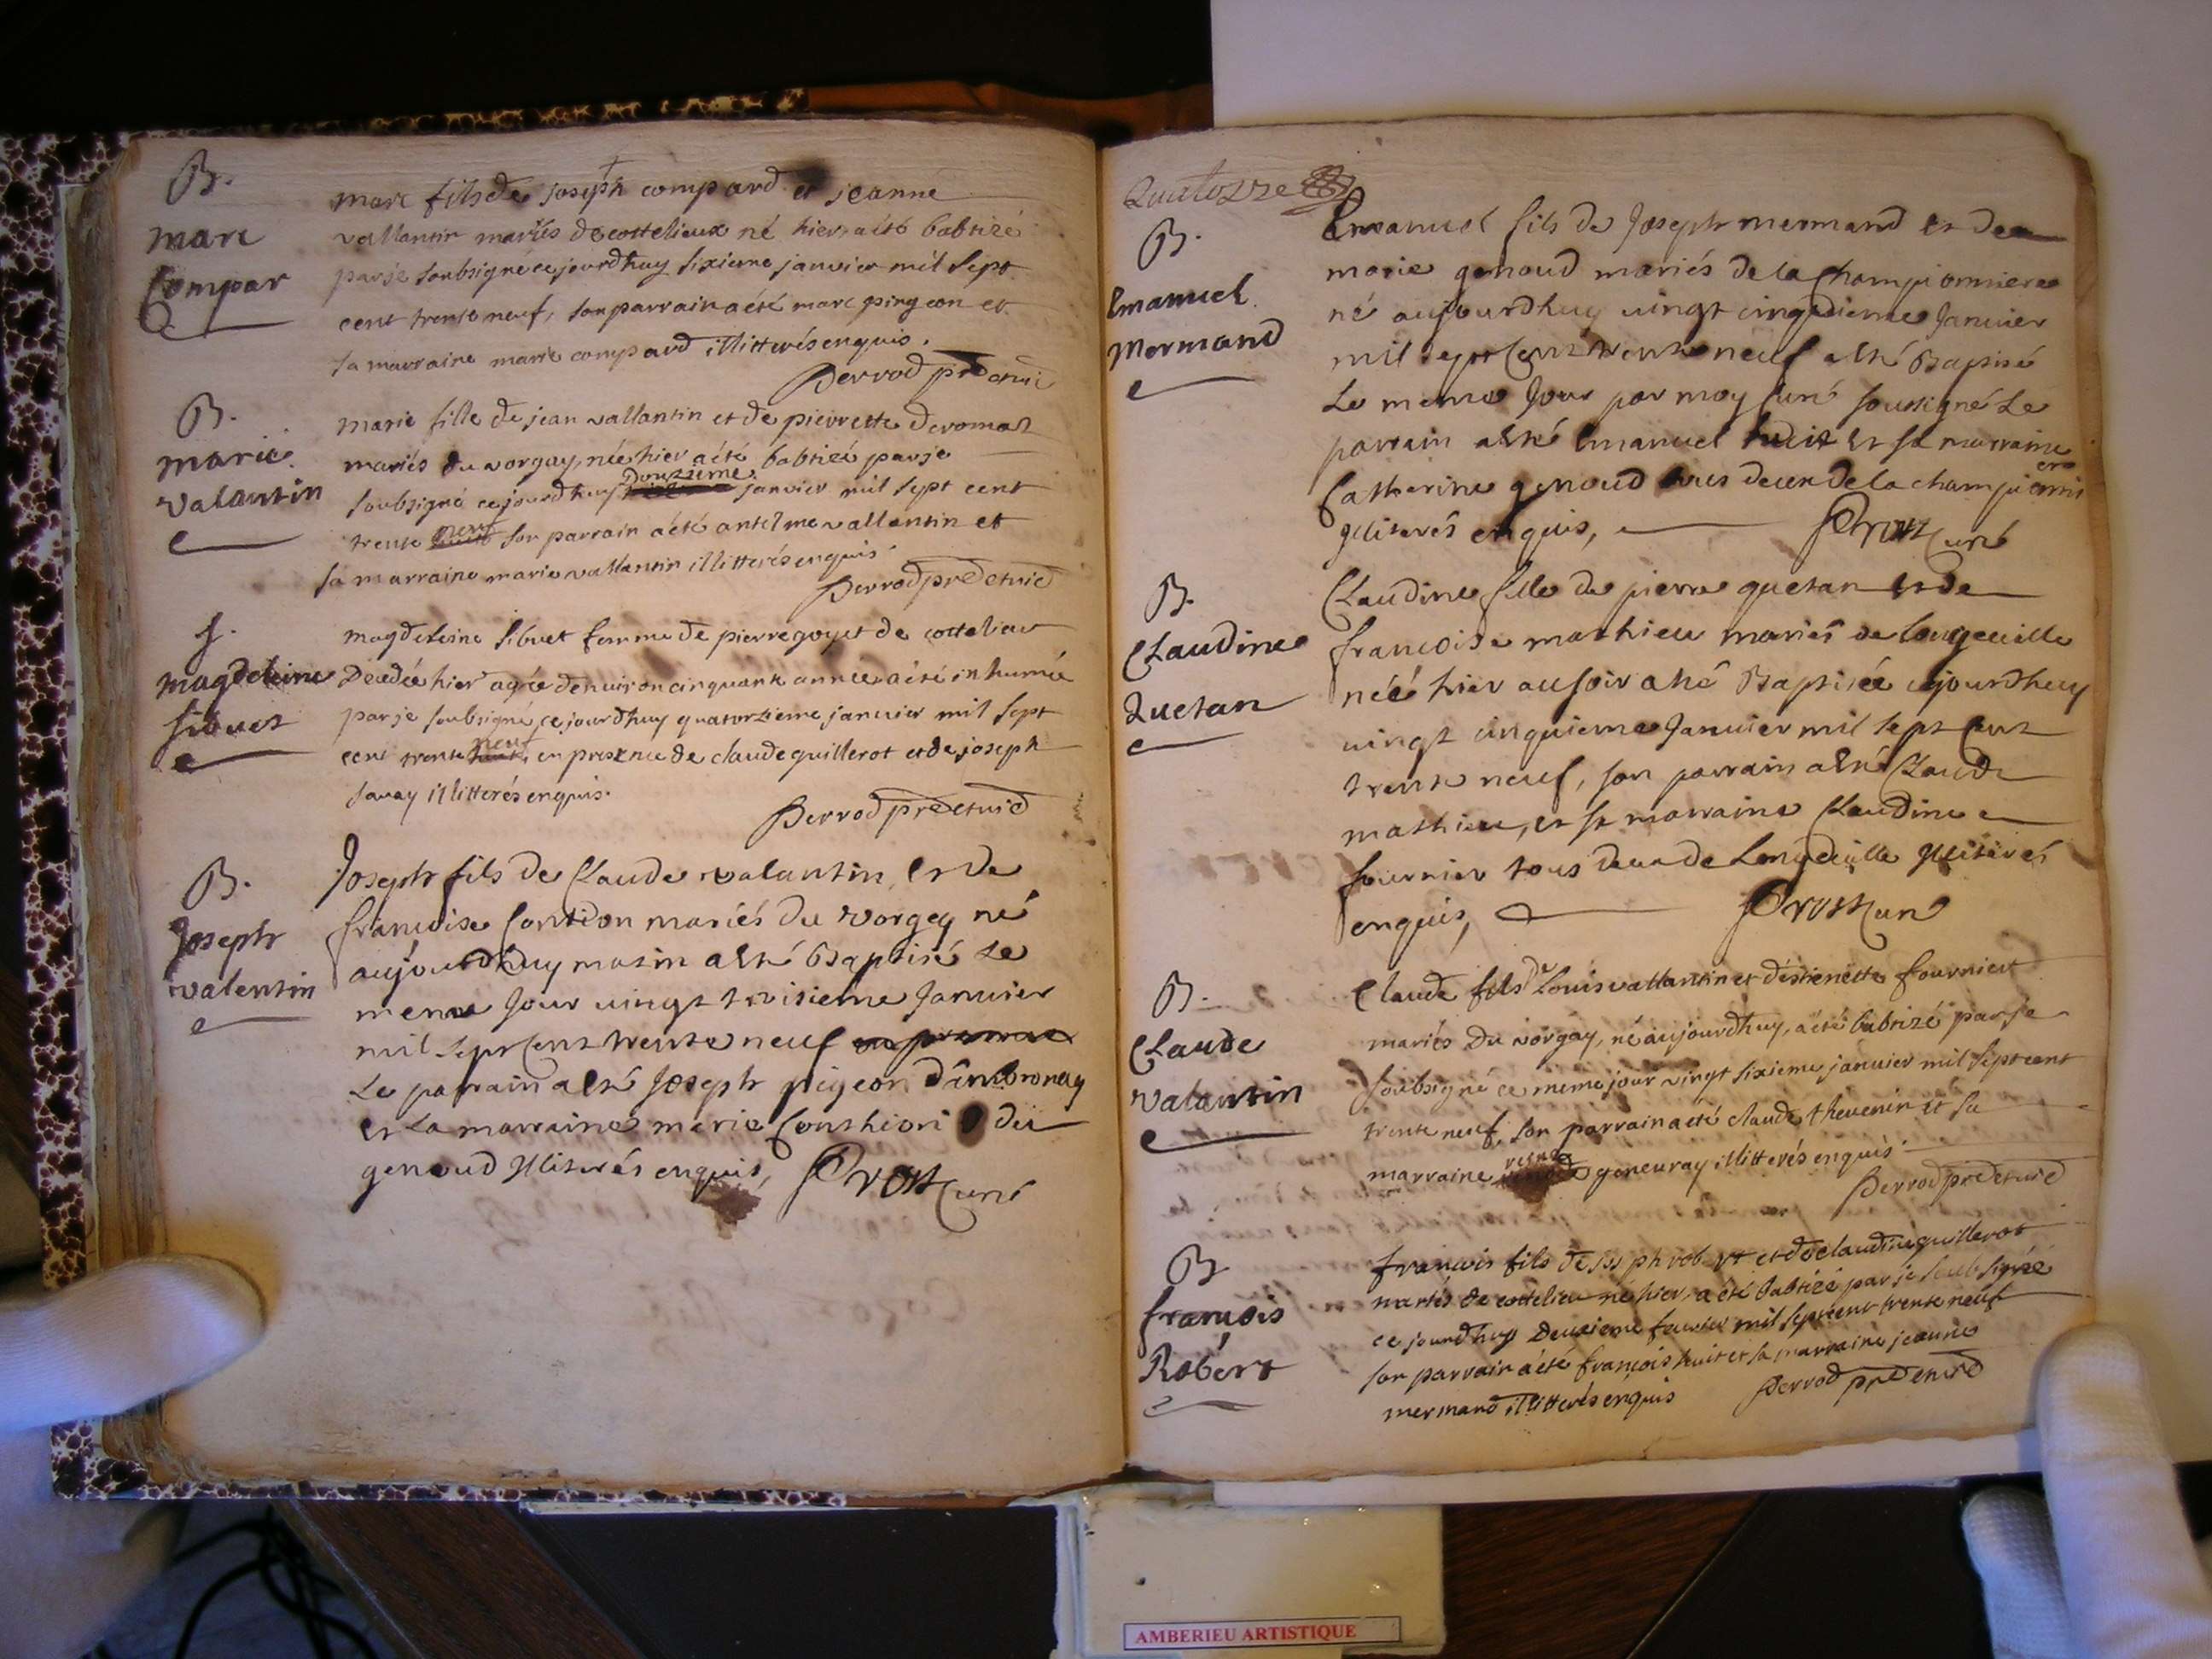 B.
marc
Compar
marc fils de joseph compard et jeanne
vallantin mariés de cottelieux né hier, a été babtizé
par je soubsigné ce jourdhuy sixieme janvier mil sept
cent trente neuf, son parrain a été marc pingeon et
sa marraine marie compard illitterés enquis.
Perrod
B.
marie
valantin
marie fille de jean vallantin et de pierrette deromas
mariés du vorgay, née hier a été babtizé par je
soubsigné ce jourdhuy douzieme janvier mil sept cent
trente neuf son parrain a été antelme vallantin et
sa marraine marie vallantin illitterés enquis.
Perrod
S.
magdeleine
sibuet
magdeleine sibuet femme de pierre goyet de cottelieu
decedée hier agée denviron cinquante année a été inhumée
par je soubsigné, ce jourdhuy quatorzieme janvier mil sept
cent trente neuf, en presence de claude guillerot et de joseph
savay illitterés enquis.
Perrod
B.
Joseph
valentin
Joseph fils de Claude valantin et de
francoise mariés du vorgey né
aujourdhuy matin a esté Baptisé le
meme Jour vingt troisieme Janvier
mil sept cent trente neuf
Le parrain a esté Joseph pigeon dambronay
et la marraine marie du
genoud illiterés enquis, Prost curé
Quatorze
B.
Emanuel
Mermand
Emanuel fils de Joseph mermand et de
marie genoud mariés de la championniere
né aujourdhuy vingt cinquieme Janvier
mil sept cent trente neuf a esté Baptisé
Le meme Jour par moy curé soussigné Le
parrain a esté Emanuel huit et sa marraine
Catherine genoud de la championniere
illiterés enquis, Prost curé
B.
Claudine
Quetan
Claudine fille de pierre quetan et de
francoise mathieu mariés de longeville
néé hier au soir a été Baptiséé cejourdhuy
vingt cinquieme Janvier mil sept cent
trente neuf, son parrain a esté Claude
mathieu, et sa marraine Claudine
fournier tous deux de Longeville illiterés
enquis, Prost curé
B.
Claude
valantin
Claude fils de Louis vallantin et destienette fournier
mariés du vorgay, né aujourdhuy, a été babtizé par je
soubsigné ce meme jour vingt sixieme janvier mil sept cent
trente neuf, son parrain a été claude thevenin et sa
marraine geneuray illitterés enquis.
Perrod
B
françois
Robert
francois fils de joseph robert et de claudine guillerot
mariés de cottelieu né hier, a été babtizé par je soubsigné
ce jourdhuy deuxieme fevrier mil sept cent trente neuf
son parrain a été françois huit et sa marraine jeanne
mermand illitterés enquis Perrod
AMBERIEU ARTISTIQUE